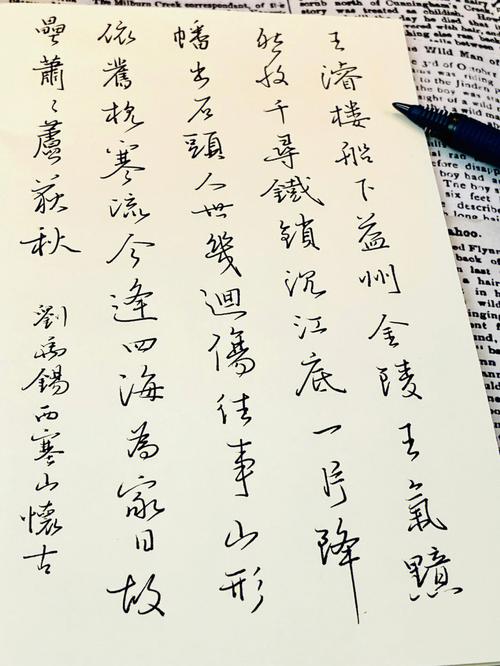 王濬楼船下益州金陵王氣黯
然收千尋鐵鎖沉江底一片降
幡出石頭人世幾迴傷往事山形
依舊枕寒流今逢四海為家日故
壘蕭〻蘆荻秋 劉禹錫西塞山懷古
The Milburn Creek correspondent, of the
scrub north of Cunningham's
Wild Man of
3rd of October
was riding
to the Jinden
The boy
six feet
describe
long hair
ahoo.
back of